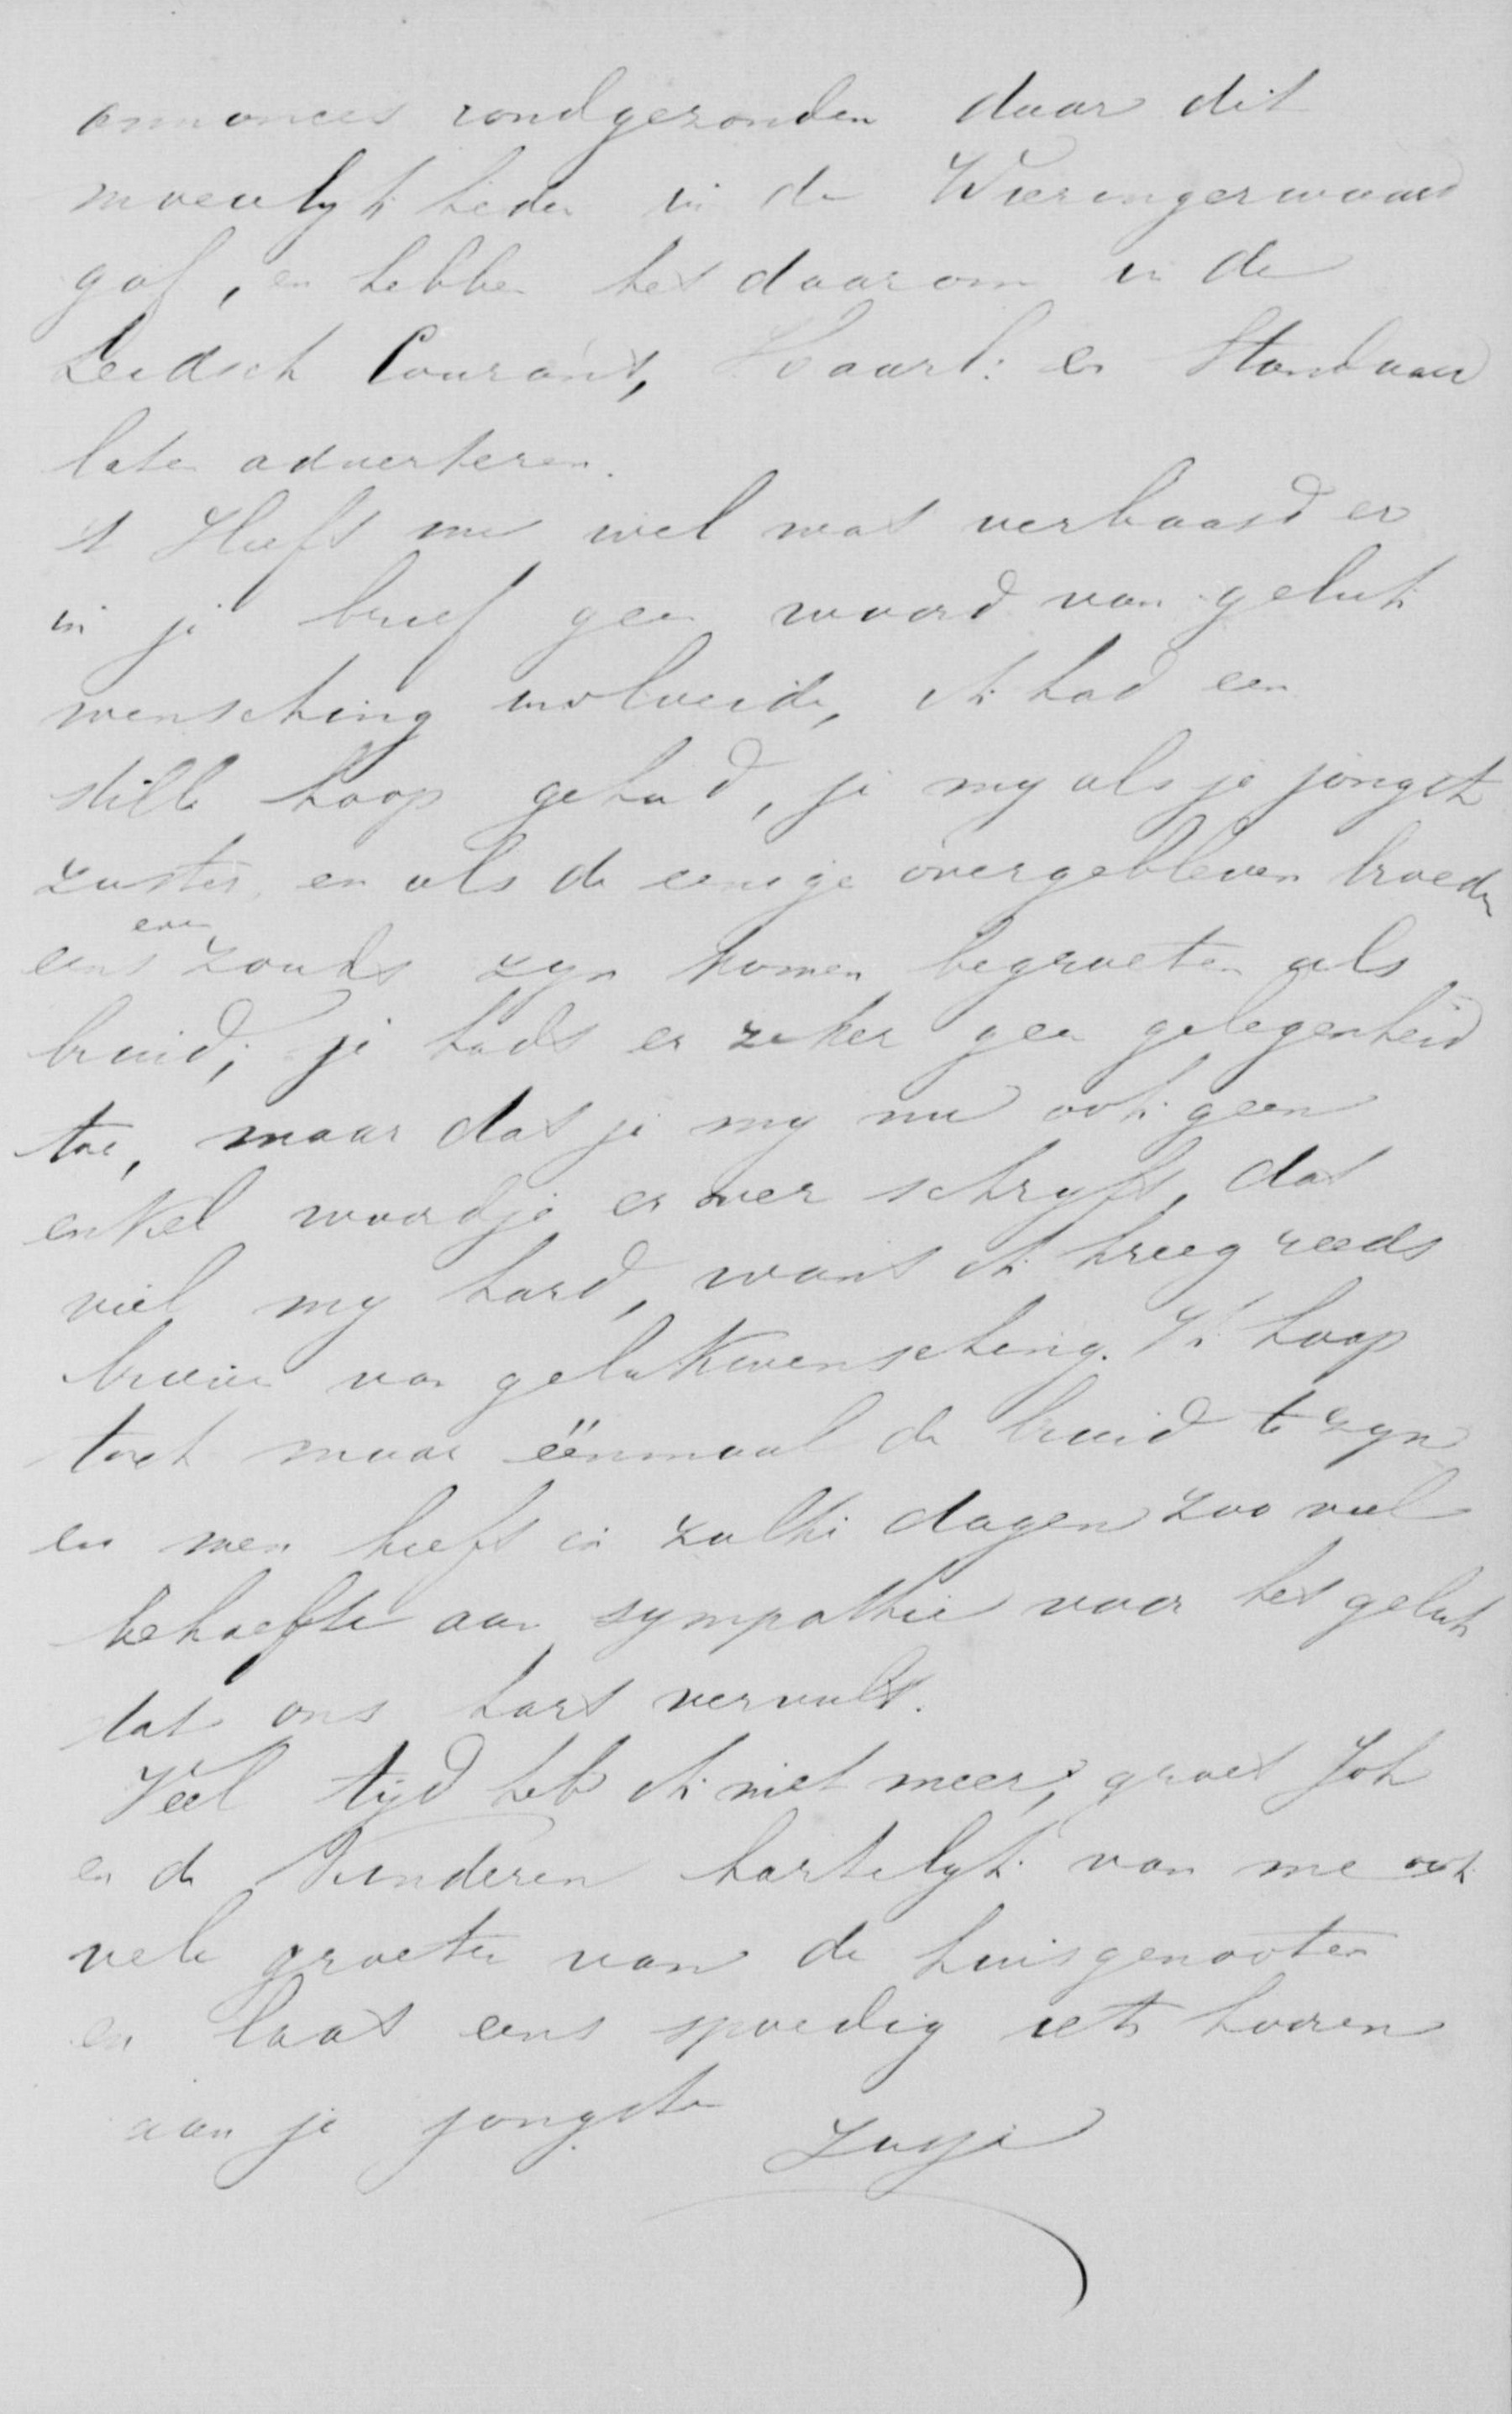 annonces rondgezonden daar dit
moeielykheden in de Wieringerwaard
gaf, en hebben het daarom in de
Leidsch Courant, Haarl: en Standaard
laten adverteren.
't Heeft me wel wat verbaasd er
in je brief geen woord van geluk
wensching invloeide, ik had een
stille hoop gehad, je my als je jongste
zuster, en als de eenige overgebleven broeder
eens even zoudt zyn komen begroeten als
bruid; je hadt er zeker geen gelegenheid
toe, maar dat je my nu ook geen
enkel woordje er over schryft, dat
viel my hard, want ik kreeg reeds
brieven van gelukwensching. Ik hoop
toch maar éénmaal de bruid te zyn
en men heeft in zulke dagen zoo veel
behoefte aan sympathie voor het geluk
dat ons hart vervult.
Veel tyd heb ik niet meer, groet Joh
en de Kinderen hartelyk van me ook
vele groeten van de huisgenooten
en laat eens spoedig iets hooren
aan je jongste Zusje